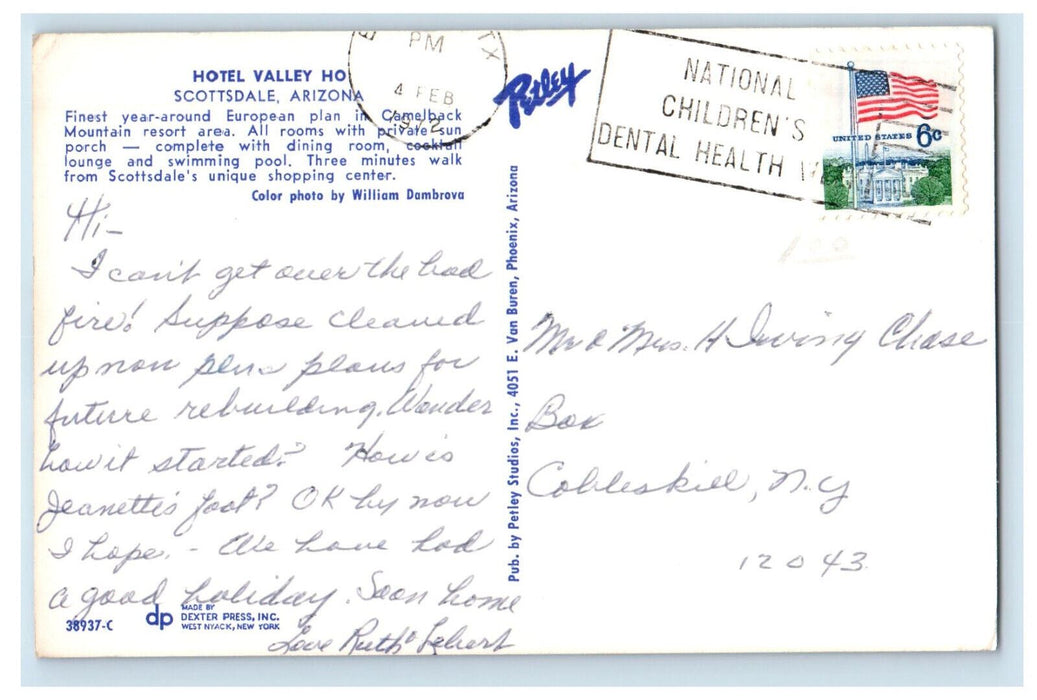 HOTEL VALLEY HO
SCOTTSDALE, ARIZONA
Finest year-around European plan in Camelback
Mountain resort area. All rooms with private sun
porch — complete with dining room, cocktail
lounge and swimming pool. Three minutes walk
from Scottsdale's unique shopping center.
Color photo by William Dambrova
Hi-
I can't get over the bad
fire! Suppose cleaned
up now plans for
future rebuilding. Wonder
how it started? How is
Jeanette's foot? OK by now
I hope. - We have had
a good holiday. Soon home
Love Ruth
38937-C
dp
MADE BY
DEXTER PRESS, INC.
WEST NYACK, NEW YORK
Petley
Pub. by Petley Studios, Inc., 4051 E. Van Buren, Phoenix, Arizona
TX
PM
4 FEB
1972
NATIONAL
CHILDREN'S
DENTAL HEALTH
UNITED STATES 6c
Mr & Mrs. H Irving Chase
Box
Cobleskill, N.Y
12043